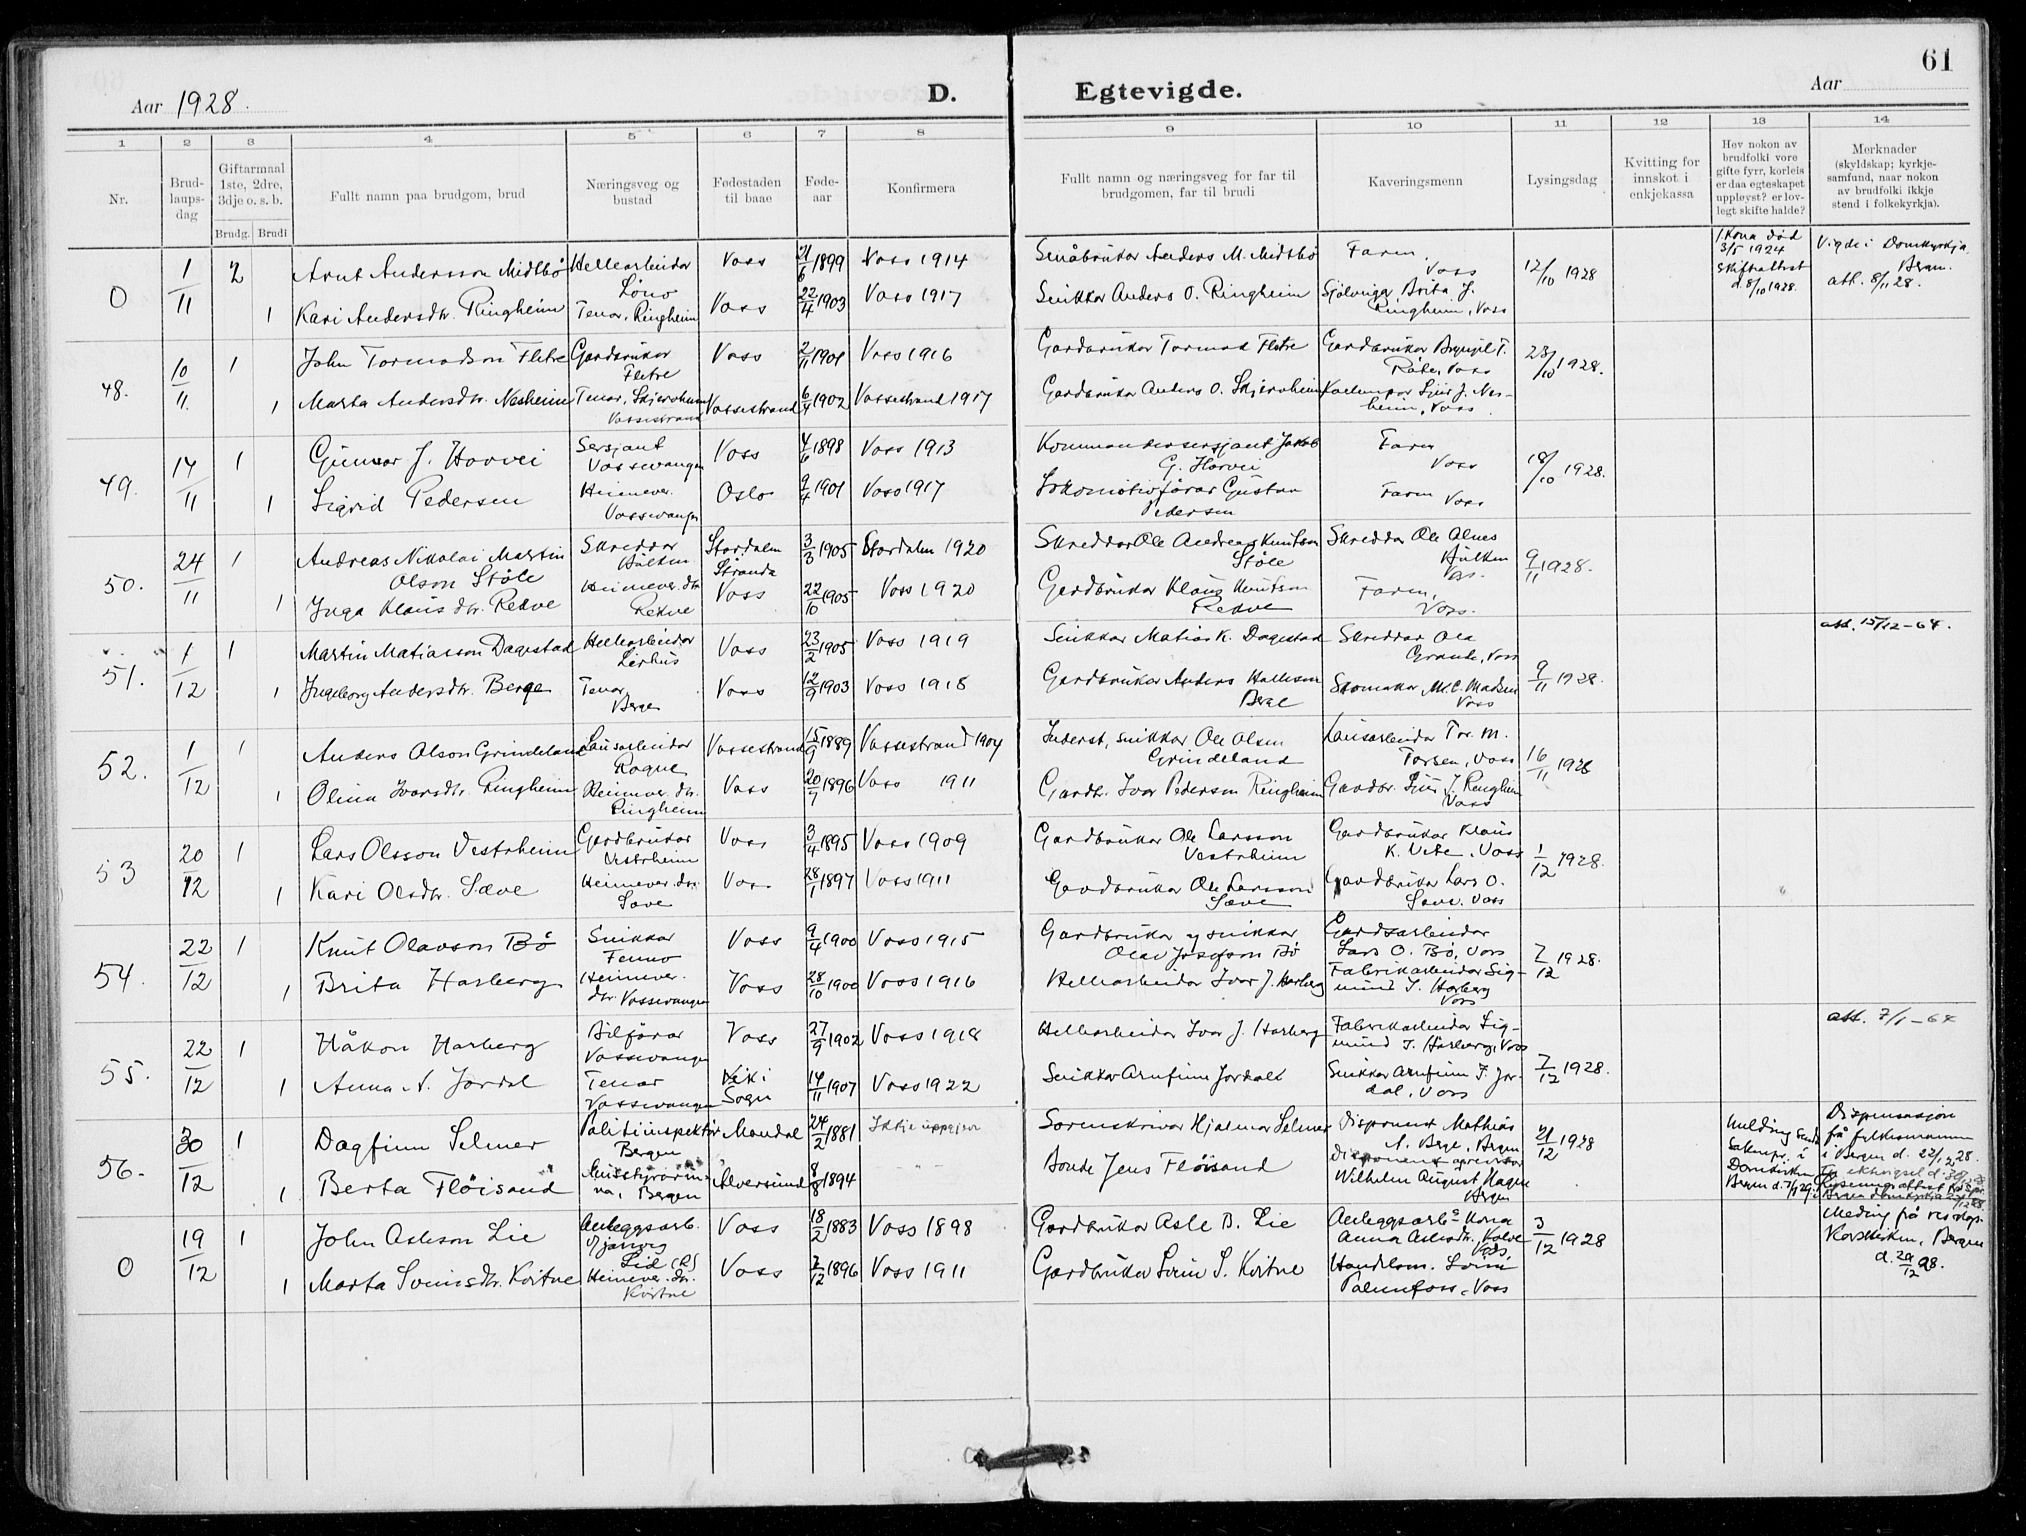 61
Aar 1928.
D.
Egtevigde.
Aar
1 2 3 4 5 6 7 8 9 10 11 12 13 14
Nr.
Brudlaups-dag
Giftarmaal 1ste, 2dre, 3dje o. s. b.
Brudg. Brudi
Fullt namn paa brudgom, brud
Næringsveg og bustad
Fødestaden til baae
Føde-aar
Konfirmera
Fullt namn og næringsveg for far til brudgomen, far til brudi
Kaveringsmenn
Lysingsdag
Kvitting for innskot i enkjekassa
Hev nokon av brudfolki vore gifte fyrr, korleis er daa egteskapet uppløyst? er lovlegt skifte halde?
Merknader (skyldskap; kyrkjesamfund, naar nokon av brudfolki ikkje stend i folkekyrkja).
0 1/11 2 Arnt Andersson Midtbø Hellearbeidar Løno Voss 21/6 1899 Voss 1914 Småbrukar Anders M. Midtbø Faren, Voss 12/10 1928 1 Kona død 3/5 1924 Skifteattest d. 8/10 1928. Vigde i Domkyrkja Bergen. att. 8/11 28.
1 Kari Andersdtr. Ringheim Tenar, Ringheim Voss 22/4 1903 Voss 1917 Snikkar Anders O. Ringheim Sjølveigar Brita J. Ringheim, Voss
48. 10/11 1 John Tormodson Fletre Gardbrukar Fletre Voss 2/11 1901 Voss 1916 Gardbrukar Tormod Fletre Gardbrukar Brynjel T. Røte, Voss 28/10 1928.
1 Marta Andersdtr. Nesheim Tenar, Skjervheim Vossestrand Vossestrand 6/4 1902 Vossestrand 1917 Gardbrukar Anders O. Skjervheim Sjur J. Nesheim, Voss.
49. 14/11 1 Gunnar J. Horvei Sersjant Vossevangen Voss 4/6 1898 Voss 1913 Kommandersersjant Jakob G. Horvei Faren Voss 18/10 1928.
1 Sigrid Pedersen Heimever. Vossevangen Oslo 9/4 1901 Voss 1917 Lokomotivførar Gustav Pedersen Faren Voss
50. 24/11 1 Andreas Nikolai Martin Olson Støle Skreddar Hulten Stordalen Stranda 3/3 1905 Stordalen 1920 Skreddar Ole Andreas Knutson Støle Skreddar Ole Alnes Voss. 9/11 1928.
1 Inga Klausdtr. Rekve Heimever. dtr. Rekve Voss 22/10 1905 Voss 1920 Gardbrukar Klaus Knutson Rekve Faren, Voss.
51. 1/12 1 Martin Matiasson Dagestad Hellearbeidar Lirhus Voss 23/2 1905 Voss 1919 Snikkar Matias K. Dagestad Skreddar Ola Graute, Voss 9/11 1928. att. 15/12-64.
1 Ingeborg Andersdtr. Berge Tenar Berge Voss 12/9 1903 Voss 1918 Gardbrukar Anders Halleson Berge Skomakar M. C. Madsen Voss
52. 1/12 1 Anders Olson Grindeland Lausarbeidar Rogne Vossestrand 15/9 1889 Vossestrand 1904 Inderst, snikkar Ole Olsen Grindeland Lausarbeidar Tor. M. Torsen, Voss 16/11 1928
1 Olina Ivarsdtr. Ringheim Heimever. dtr. Ringheim Voss 20/7 1896 Voss 1911 Gardbr. Ivar Pederson Ringheim Gardbr. Sjur J. Ringheim Voss
53 20/12 1 Lars Olsson Vestrheim Gardbrukar Vestrheim Voss 3/4 1895 Voss 1909 Gardbrukar Ole Larsson Vestrheim Gardbrukar Klaus K. Vete, Voss 1/12 1928.
1 Kari Olsdtr. Sæve Heimever. dtr. Sæve Voss 28/1 1897 Voss 1911 Gardbrukar Ole Larsson Sæve Gardbrukar Lars O. Sæve. Voss
54. 22/12 1 Knut Olavson Bø Snikkar Fenno Voss 9/4 1900 Voss 1915 Gardbrukar og snikkar Olav Josefson Bø Gardsarbeidar Lars O. Bø, Voss 7/12 1928.
1 Brita Harberg Heimever. dtr. Vossevangen Voss 28/10 1900 Voss 1916 Hellearbeidar Ivar J. Harberg Fabrikkarbeidar Sigmund I. Harberg Voss
55. 22/12 1 Håkon Harberg Bilførar Vossevangen Voss 27/9 1902 Voss 1918 Hellearbeidar Ivar J. Harberg Fabrikkarbeidar Sigmund I. Harberg, Voss 7/12 1928. att. 7/1-64
1 Anna A. Jordal Tenar Vossevangen Vik i Sogn 14/11 1907 Voss 1922 Snikkar Arnfinn Jordal Snikkar Arnfinn F. Jordal, Voss
56. 30/12 1 Dagfinn Selmer Politiinspektør Bergen Mandal 24/2 1881 Ikkje uppgjeve Sorenskrivar Hjalmar Selmer Disponent Mathias A. Berge, Bergen 21/12 1928 Melding sendt Sokneprest i Domkirken Bergen d. 7/1 29. Dispensasjon frå fylkesmannen i Bergen d. 22/12 28.
1 Berta Fløisand Bergen Alversund 8/8 1894 Bonde Jens Fløisand Disponent Wilhelm August Hagen Bergen
0 19/12 1 John Asleson Lie Anleggsarb. Lid (R) Voss 18/2 1883 Voss 1898 Gardbrukar Asle B. Lie Anleggsarb. Kona Anna Aslesdtr. Kolve Voss, 3/12 1928 Melding frå res. kap. Korskirken, Bergen d. 29/12 28.
1 Marta Sveinsdtr. Kvitne Heimever. dtr. Kvitne Voss 2/12 1896 Voss 1911 Gardbrukar Svein S. Kvitne Handelsm. Svein Palmafoss, Voss